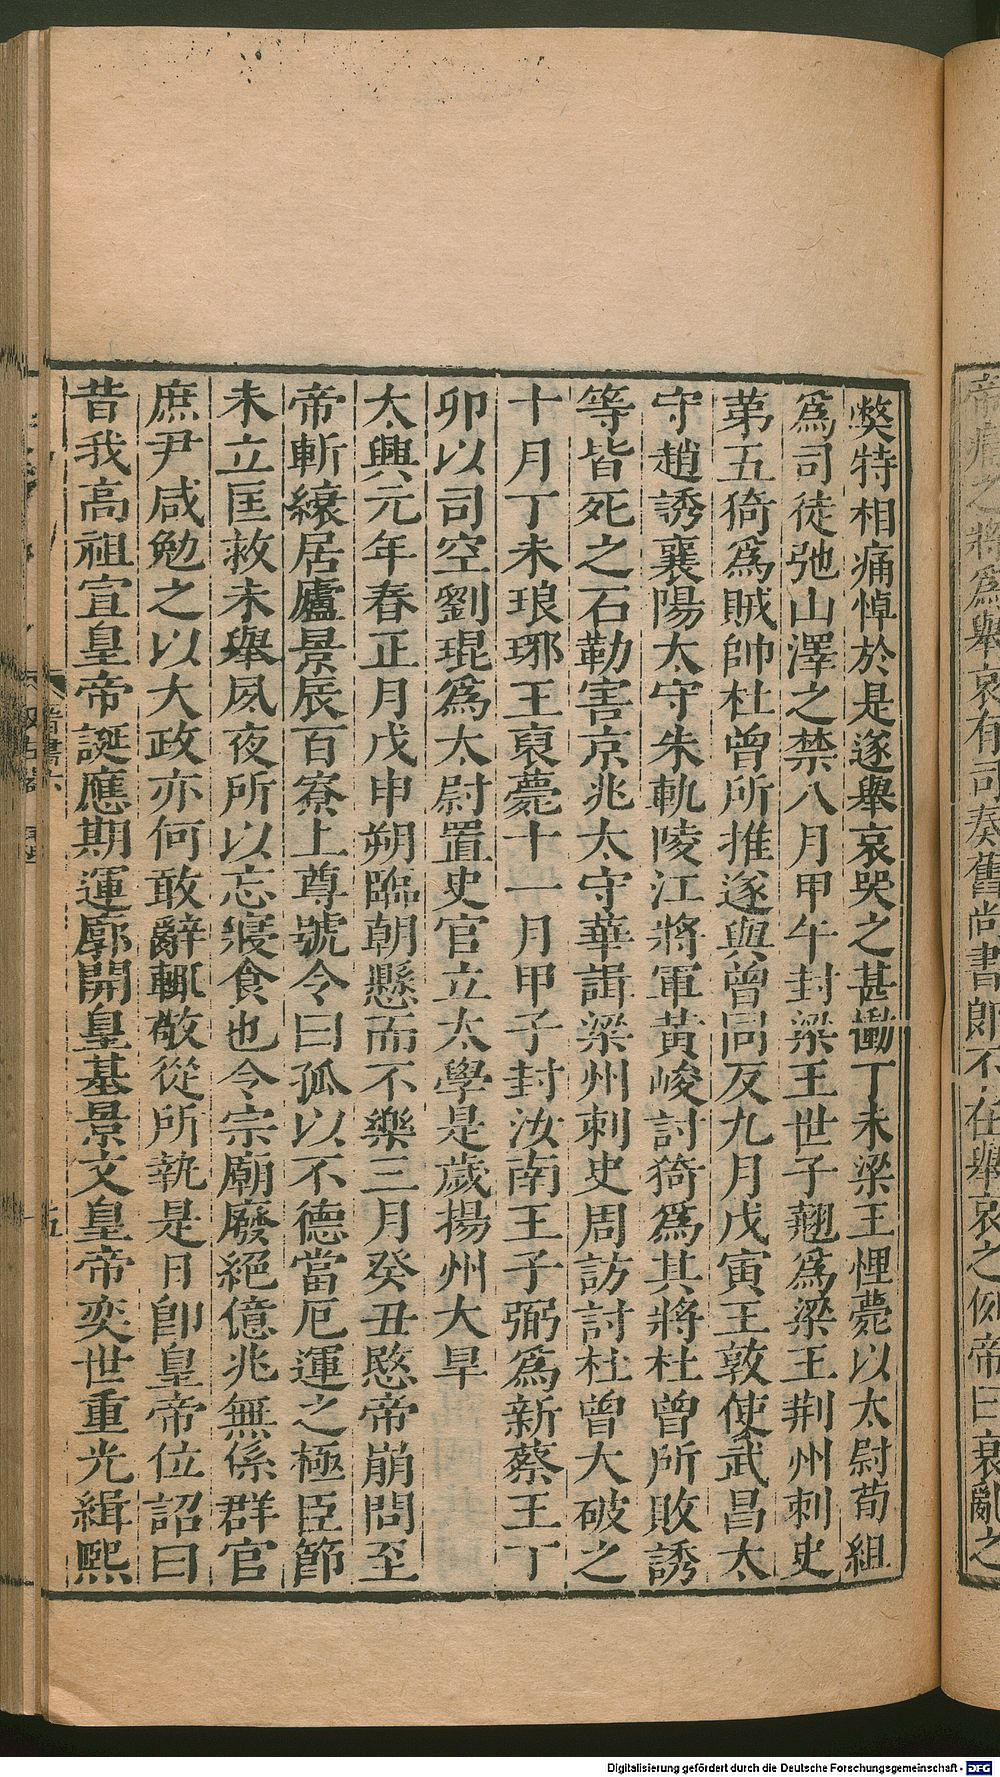 帝痛之將爲舉哀有司奏舊尚書郎不在舉哀之例帝曰衰亂之
弊特相痛悼於是遂舉哀哭之甚慟丁未梁王悝薨以太尉荀組
爲司徒弛山澤之禁八月甲午封梁王世子翹爲梁王荆州刺史
第五猗爲賊帥杜曾所推遂與曾同反九月戊寅王敦使武昌太
守趙誘襄陽太守朱軌陵江將軍黃峻討猗爲其將杜曾所敗誘
等皆死之石勒害京兆太守華諝梁州刺史周訪討杜曾大破之
十月丁未琅琊王裒薨十一月甲子封汝南王子弼爲新蔡王丁
卯以司空劉琨爲太尉置史官立太學是歲揚州大旱
太興元年春正月戊申朔臨朝懸而不樂三月癸丑愍帝崩問至
帝斬縗居廬景辰百寮上尊號令曰孤以不德當厄運之極臣節
未立匡救未舉夙夜所以忘寢食也今宗廟廢絕億兆無係群官
庶尹咸勉之以大政亦何敢辭輒敬從所執是日卽皇帝位詔曰
昔我高祖宣皇帝誕應期運廓開皇基景文皇帝奕世重光緝熙
晉書六
五
Digitalisierung gefördert durch die Deutsche Forschungsgemeinschaft - DFG